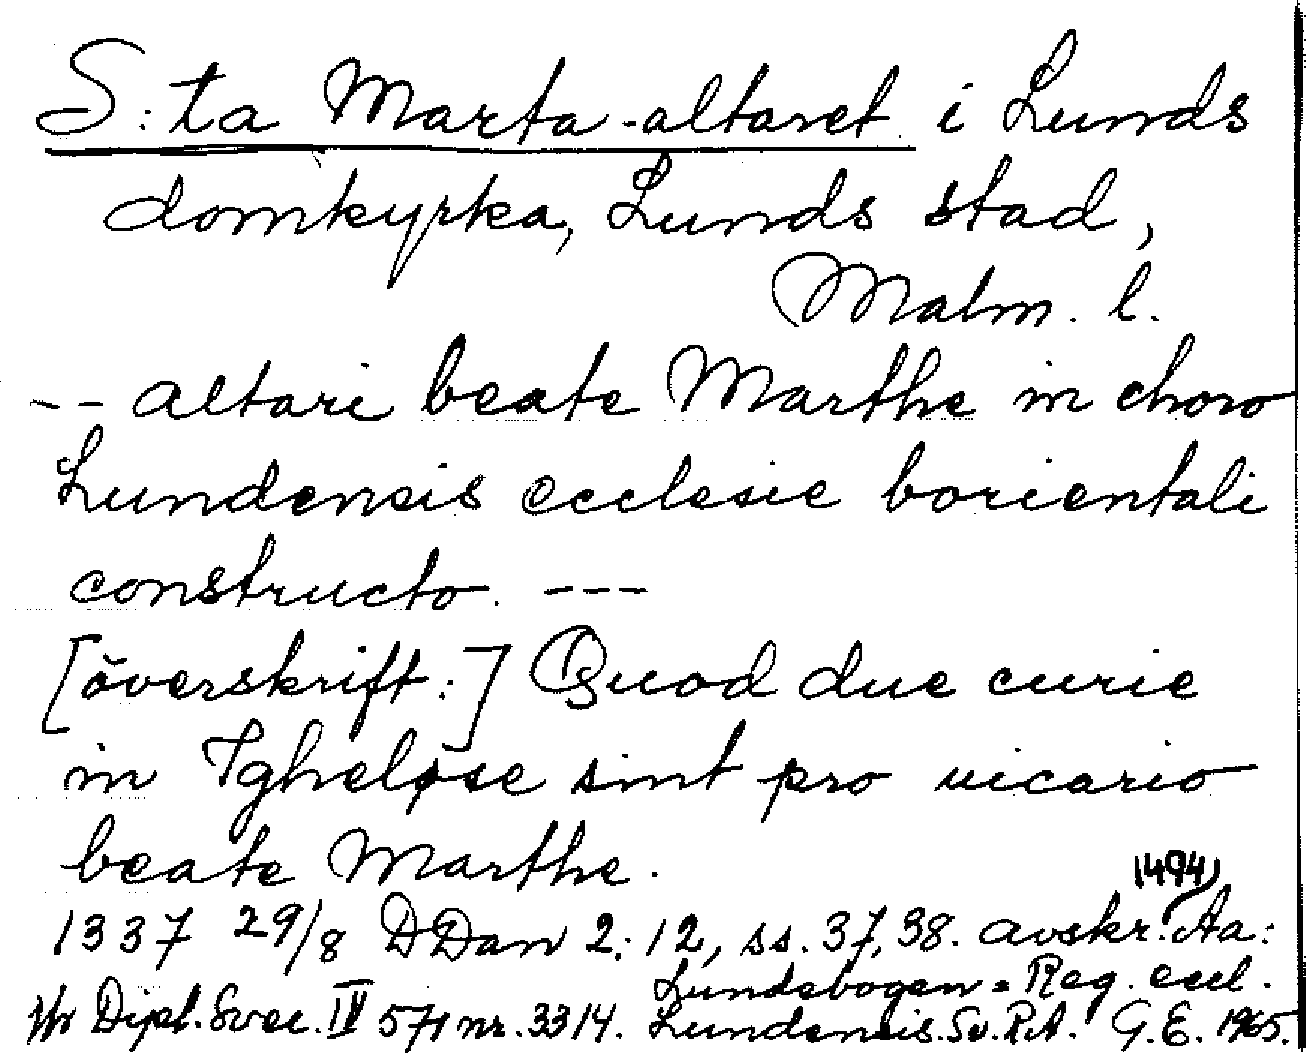 S:ta Marta-altaret i Lunds
domkyrka, Lunds stad,
Malm. l.
-- altari beate Marthe in choro
Lundensis ecclesie borientali
constructo. ---
[överskrift:] Quod due curie
in Igheløse sint pro uicario
beate Marthe.
1494
1337 29/8 DDan 2:12, ss. 37, 38. avskr. Aa:
Lundebogen = Reg. eccl.
Dipl. Svec. IV 571 nr. 3314. Lundensis. Sv. RA. G.E. 1965.